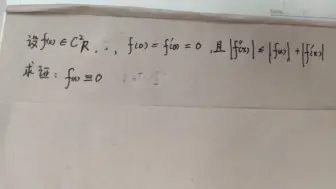 设 f(x) ∈ C²R, f(0) = f'(0) = 0, 且 |f''(x)| ≤ |f(x)| + |f'(x)|
求证: f(x) ≡ 0